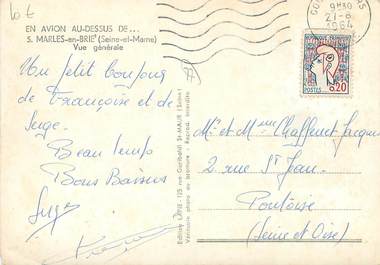 EN AVION AU-DESSUS DE...
5. MARLES-en-BRIE (Seine-et-Marne)
Vue générale
Un petit bonjour
de Françoise et de
Serge.
Beau temps
Bons Baisers
Serge
Françoise
9H30
27-8
1964
POSTES 0,20
Mr et Mme Chaffenet Jacques
2 rue St Jean.
Pontoise
(Seine et Oise)
Editions LAPIE - 125 rue Garibaldi St-MAUR (Seine)
Véritable photo au bromure - Reprod. interdite